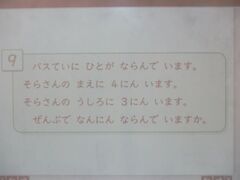 9
バスていに ひとが ならんで います。
そらさんの まえに 4にん います。
そらさんの うしろに 3にん います。
ぜんぶで なんにん ならんで いますか。